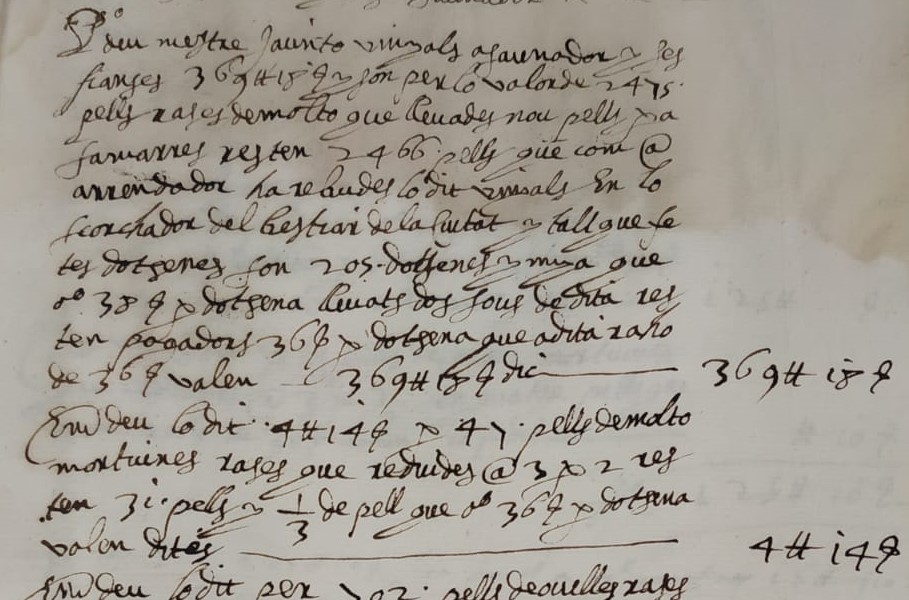 Pº deu mestre Jacinto vinyals asaunador y ses
fianses 369 ⧺ 18 ꝭ y son per lo valor de 2475
pells rases de molto que llevades nou pells p a
samarres resten 2466 pells que com @
arrendador ha rebudes lo dit vinyals En lo
scorchador del bestiar de la ciutat y tall que fe
tes dotsenes son 205 dotsenes y mija que
aº 38 ꝭ p dotsena llevats dos sous de dita res
ten pagadors 36 ꝭ p dotsena que a dita raho
de 36 ꝭ valen 369 ⧺ 18 ꝭ dic 369 ⧺ 18 ꝭ
Em deu lo dit 4 ⧺ 14 ꝭ p 47 pells de molto
mortuines rases que reduides @ 3 p 2 res
ten 31 pells y 1/3 de pell que aº 36 ꝭ p dotsena
valen dites 4 ⧺ 14 ꝭ
Em deu lo dit per pells de ovelles rases